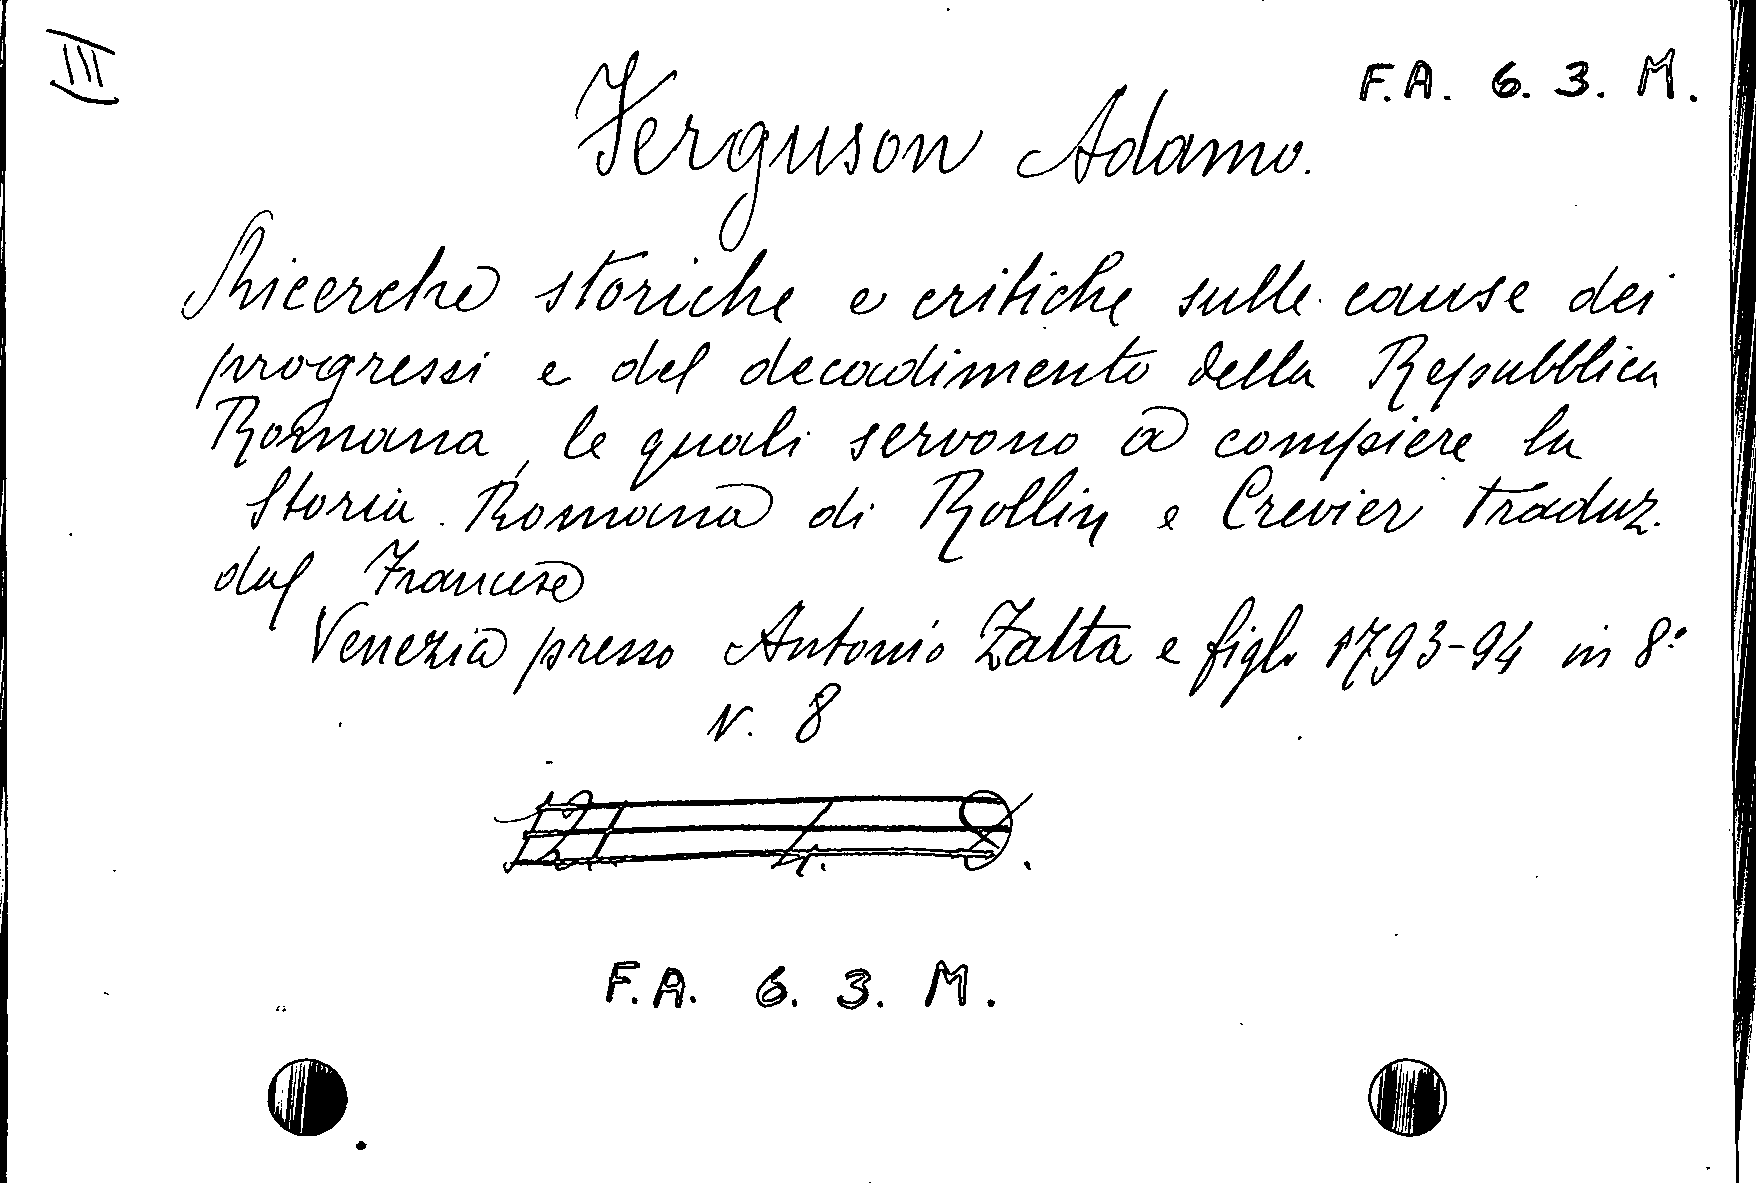 III
F.A. 6. 3. M.
Ferguson Adamo.
Ricerche storiche e critiche sulle cause dei
progressi e del decadimento della Repubblica
Romana, le quali servono a compiere la
Storia Romana di Rollin e Crevier traduz.
dal Francese
Venezia presso Antonio Zatta e figli 1793-94 in 8°
N. 8
F.A. 6. 3. M.